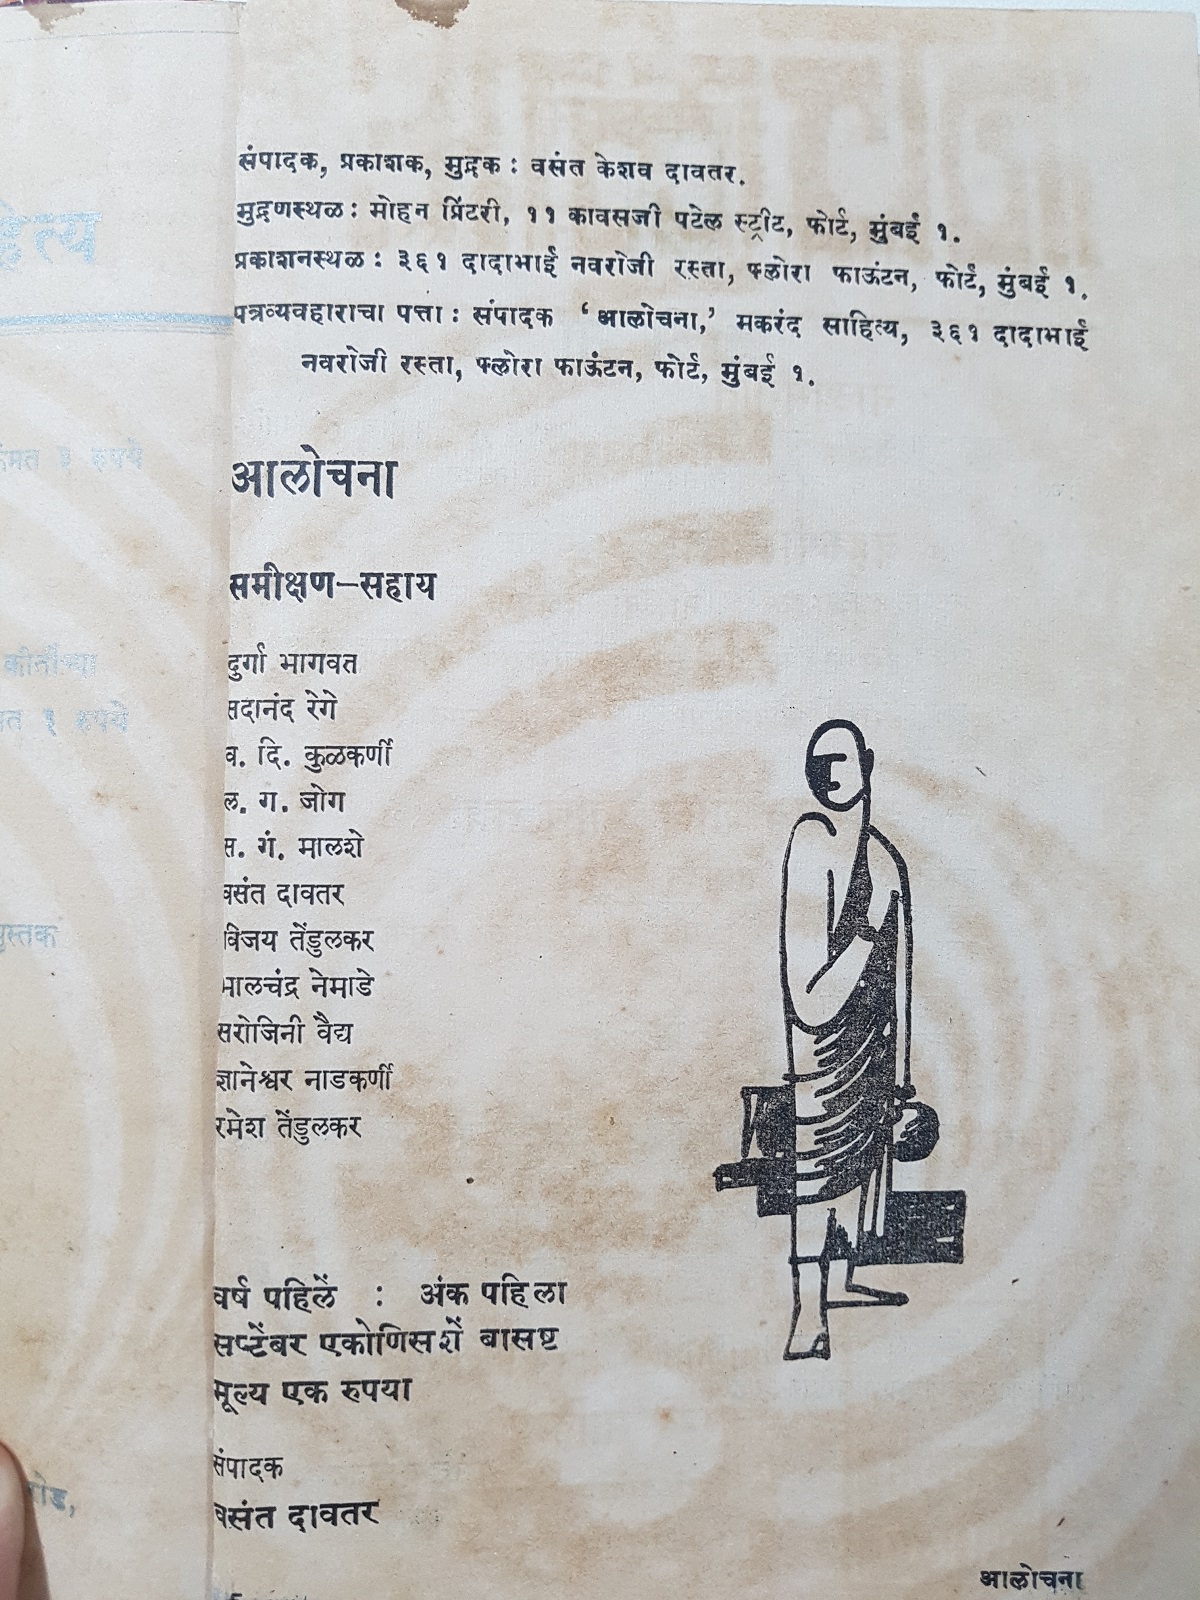 संपादक, प्रकाशक, मुद्रक : वसंत केशव दावतर.
मुद्रणस्थळ : मोहन प्रिंटरी, ११ कावसजी पटेल स्ट्रीट, फोर्ट, मुंबई १.
प्रकाशनस्थळ : ३६१ दादाभाई नवरोजी रस्ता, फ्लोरा फाऊंटन, फोर्ट, मुंबई १.
पत्रव्यवहाराचा पत्ता : संपादक ‘आलोचना,’ मकरंद साहित्य, ३६१ दादाभाई
नवरोजी रस्ता, फ्लोरा फाऊंटन, फोर्ट, मुंबई १.
आलोचना
समीक्षण—सहाय
दुर्गा भागवत
सदानंद रेगे
व. दि. कुळकर्णी
ल. ग. जोग
स. गं. मालशे
वसंत दावतर
विजय तेंडुलकर
भालचंद्र नेमाडे
सरोजिनी वैद्य
ज्ञानेश्वर नाडकर्णी
रमेश तेंडुलकर
वर्ष पहिलें : अंक पहिला
सप्टेंबर एकोणिसशें बासष्ट
मूल्य एक रुपया
संपादक
वसंत दावतर
आलोचना